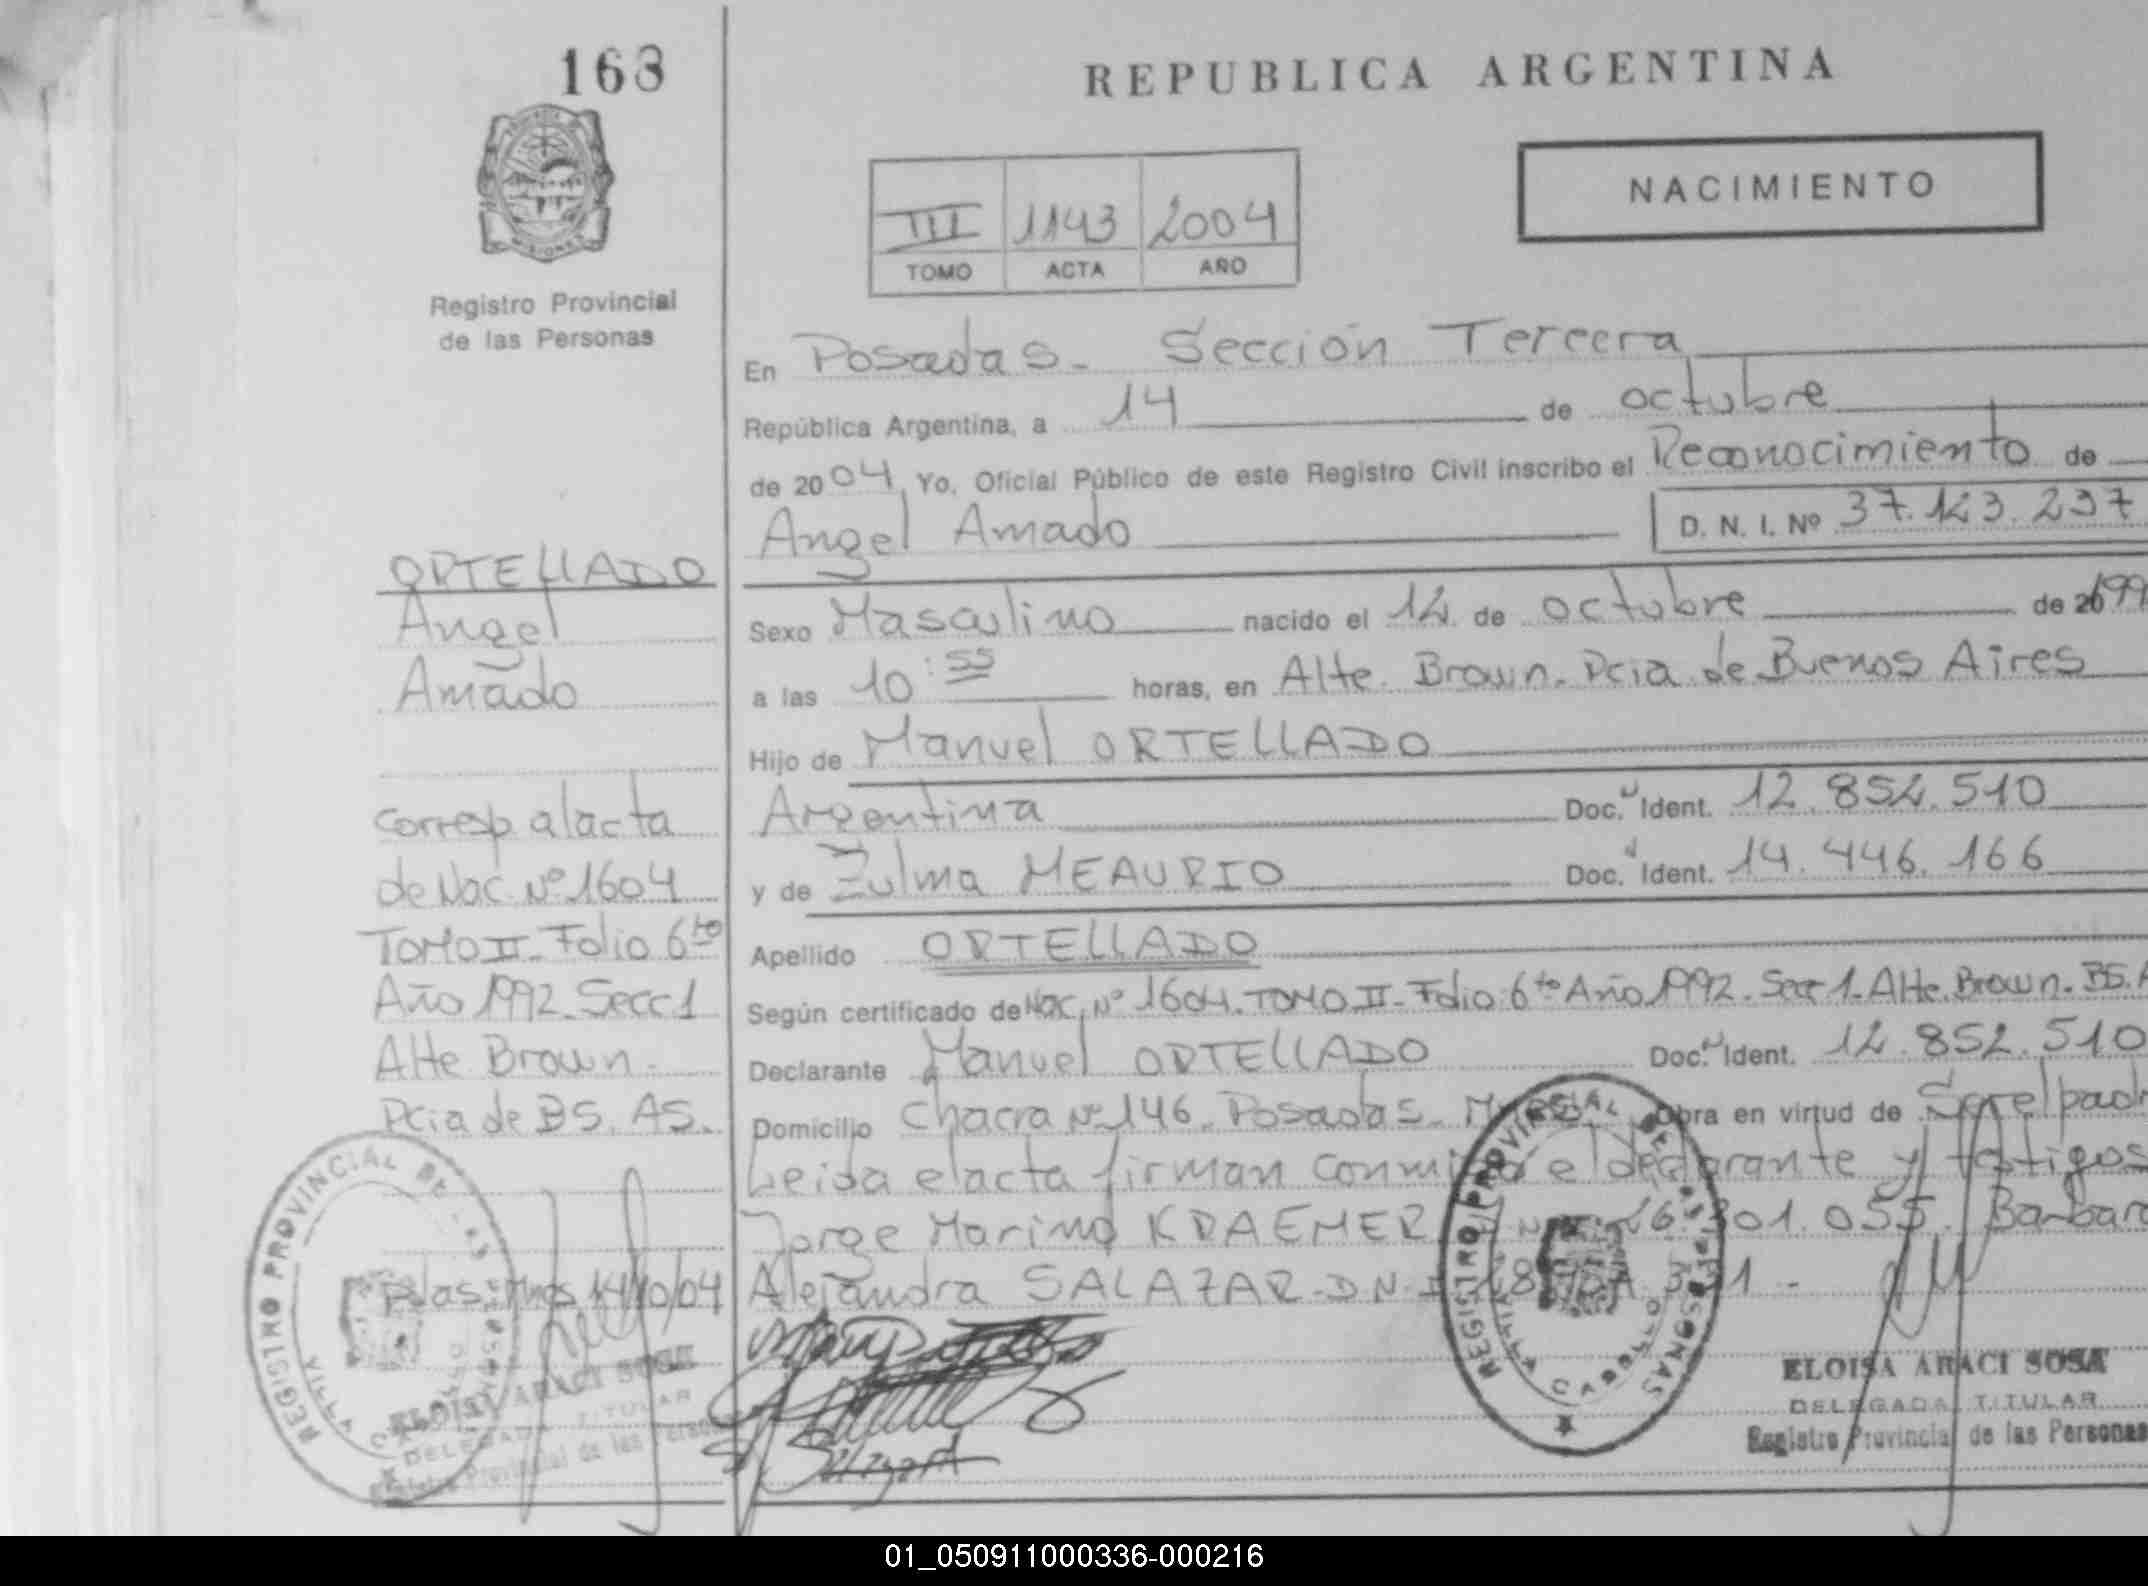 163
REPUBLICA ARGENTINA
NACIMIENTO
III 1143 2004
TOMO ACTA AÑO
Registro Provincial
de las Personas
En Posadas - Sección Tercera
República Argentina, a 14 de octubre
de 2004 Yo, Oficial Público de este Registro Civil inscribo el Reconocimiento de
Angel Amado D. N. I. Nº 37.123.237
Sexo Masculino nacido el 12 de octubre de 199
a las 10:55 horas, en Alte. Brown - Pcia de Buenos Aires
Hijo de Manuel ORTELLADO
Argentina Doc. Ident. 12.852.510
y de Zulma MEAURIO Doc. Ident. 14.446.166
Apellido ORTELLADO
Según certificado de Nac. Nº 1604 - TOMO II - Folio 6to Año 1992 - Secc 1 - Alte. Brown - BS.
Declarante Manuel ORTELLADO Doc. Ident. 12.852.510
Domicilio Chacra Nº 146 - Posadas - Obra en virtud de Ser el
Leida el acta firman conmigo el declarante y testigos
Jorge Marino KRAEMER 301.055 Barbara
Alejandra SALAZAR - D.N.I.
ORTELLADO
Angel
Amado
corresp al acta
de Nac. Nº 1604
TOMO II - Folio 6to
Año 1992 - Secc 1
Alte Brown -
Pcia de BS. AS.
Pdas. Mnes 14/10/04
REGISTRO PROVINCIAL DE LAS PERSONAS
VILLA CABELLO
ELOISA ARACI SOSA
DELEGADA TITULAR
Registro Provincial de las Personas
REGISTRO PROVINCIAL DE LAS PERSONAS
VILLA CABELLO
ELOISA ARACI SOSA
DELEGADA TITULAR
Registro Provincial de las Personas
01_050911000336-000216